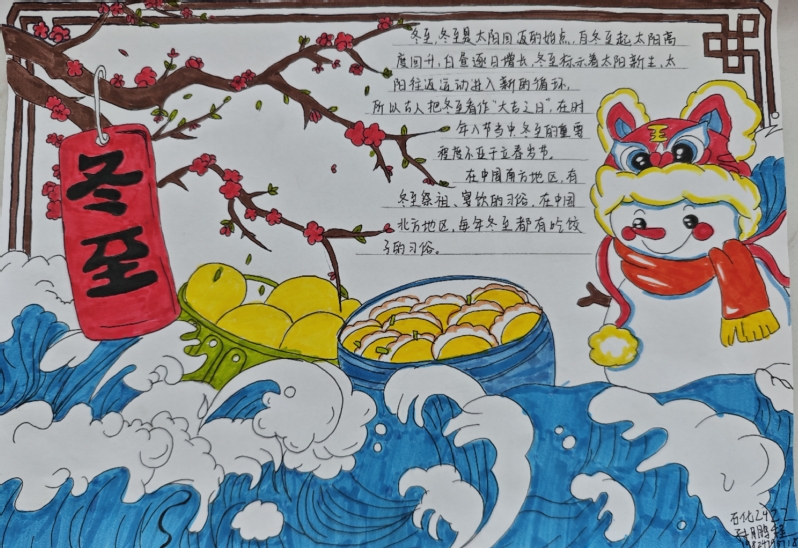 冬至
冬至,冬至是太阳回返的始点,自冬至起太阳高
度回升,白昼逐日增长,冬至标示着太阳新生、太
阳往返运动进入新的循环.
所以古人把冬至看作"大吉之日",在时
年八节当中,冬至的重要
程度不亚于立春岁节.
在中国南方地区,有
冬至祭祖、宴饮的习俗,在中国
北方地区,每年冬至都有吃饺
子的习俗。
石化2422